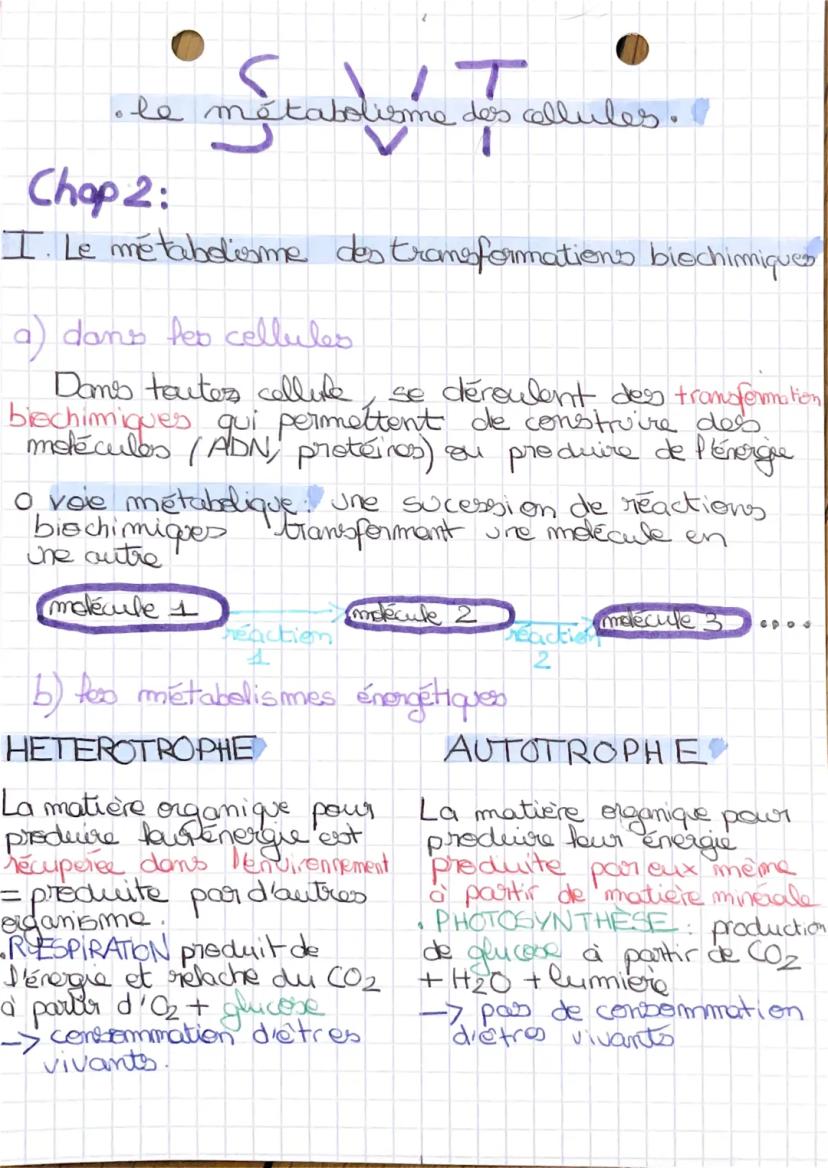 SVT
. le métabolisme des cellules.
Chap 2:
I. Le métabolisme des transformations biochimiques
a) dans les cellules
Dans toutes cellule, se déroulent des transformation
biochimiques qui permettent de construire des
molécules (ADN, protéines) ou produire de l'énergie
o voie métabolique: une sucession de réactions
biochimiques transformant une molécule en
une autre
molécule 1 molécule 2 molécule 3 ....
réaction réaction
1 2
b) les métabolismes énergétiques
HETEROTROPHE
La matière organique pour
produire leur énergie est
récuperée dans l'environnement
= produite par d'autres
organisme.
.RESPIRATION produit de
l'énergie et relache du CO2
à partir d'O2 + glucose
-> consommation d'êtres
vivants.
AUTOTROPHE
La matière organique pour
produire leur énergie
produite par eux même
à partir de matière minérale
. PHOTOSYNTHÈSE : production
de glucose à partir de CO2
+ H2O + lumière
-> pas de consommation
d'êtres vivants